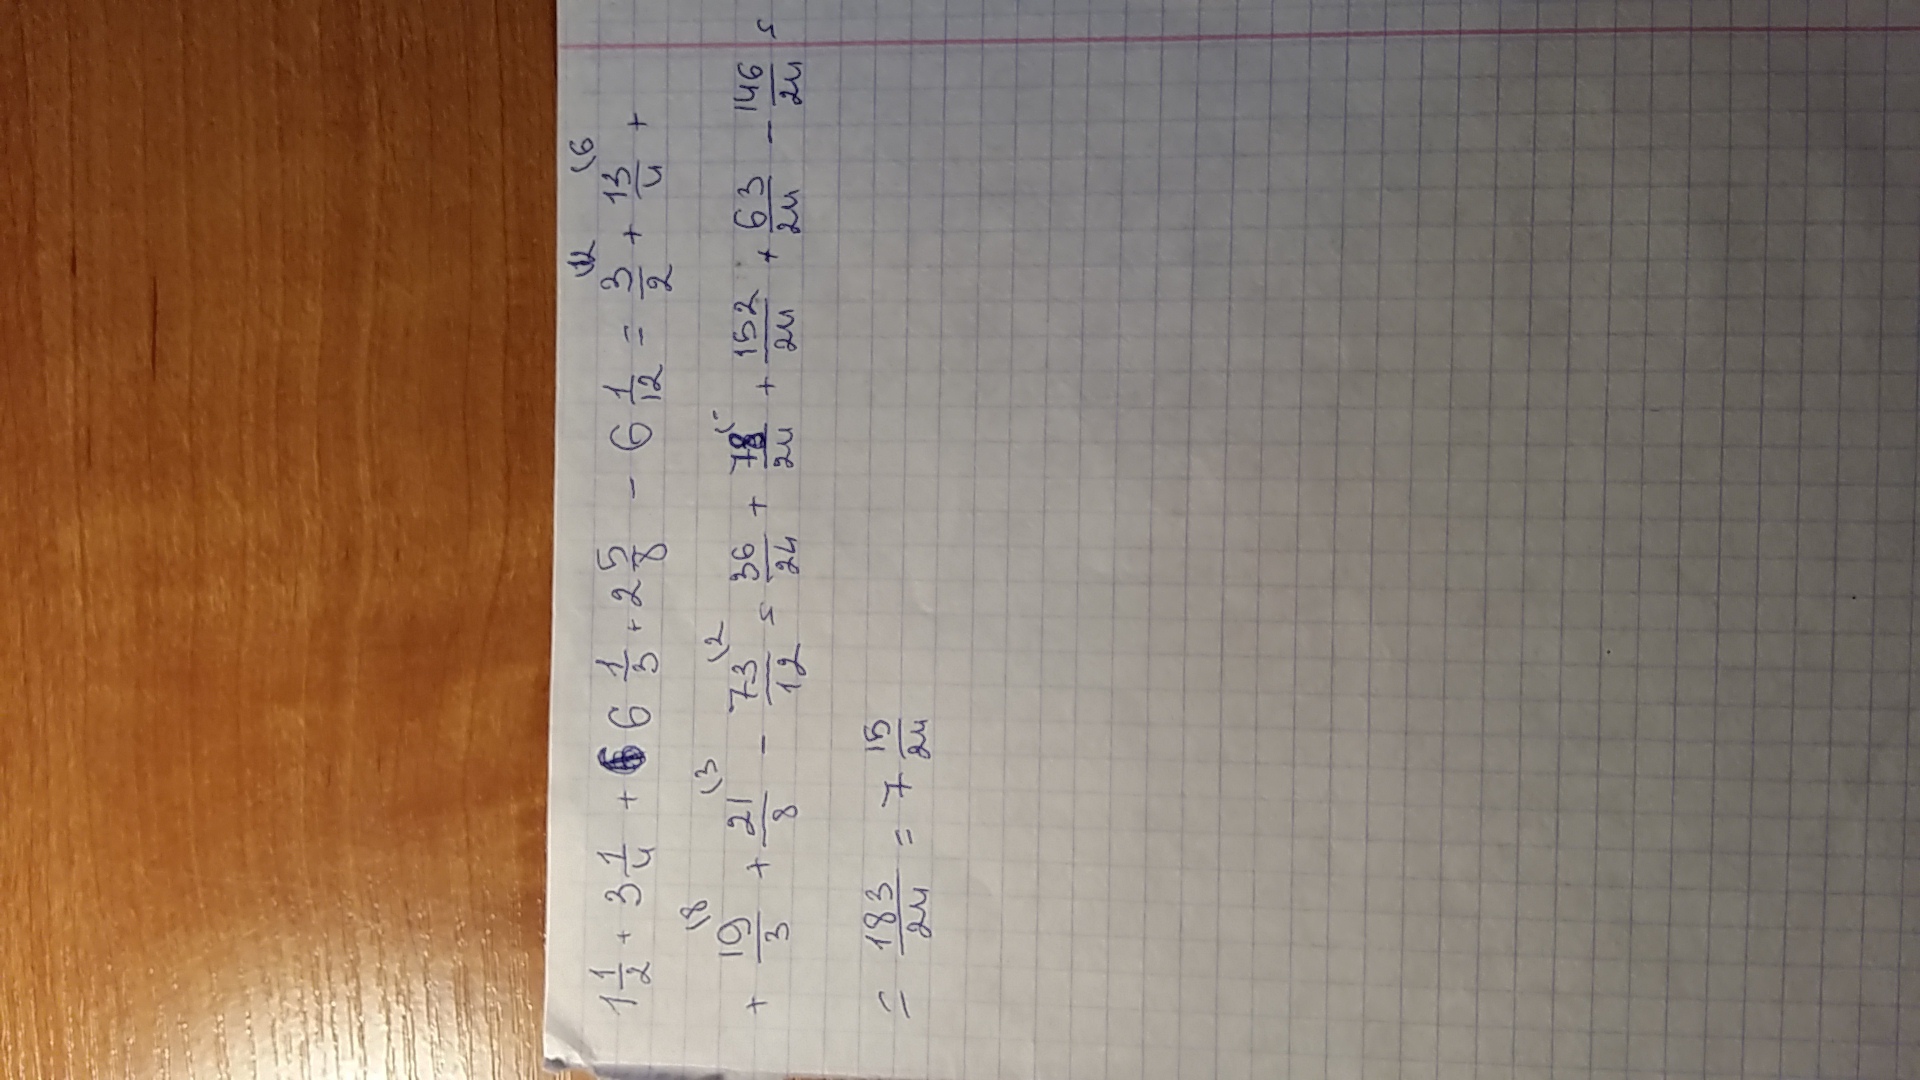 1 1/2 + 3 1/4 + 6 1/3 + 2 5/8 - 6 1/12 = 3/2 \12 + 13/4 \6 +
+ 19/3 \8 + 21/8 \3 - 73/12 \2 = 36/24 + 78/24 + 152/24 + 63/24 - 146/24 =
= 183/24 = 7 15/24